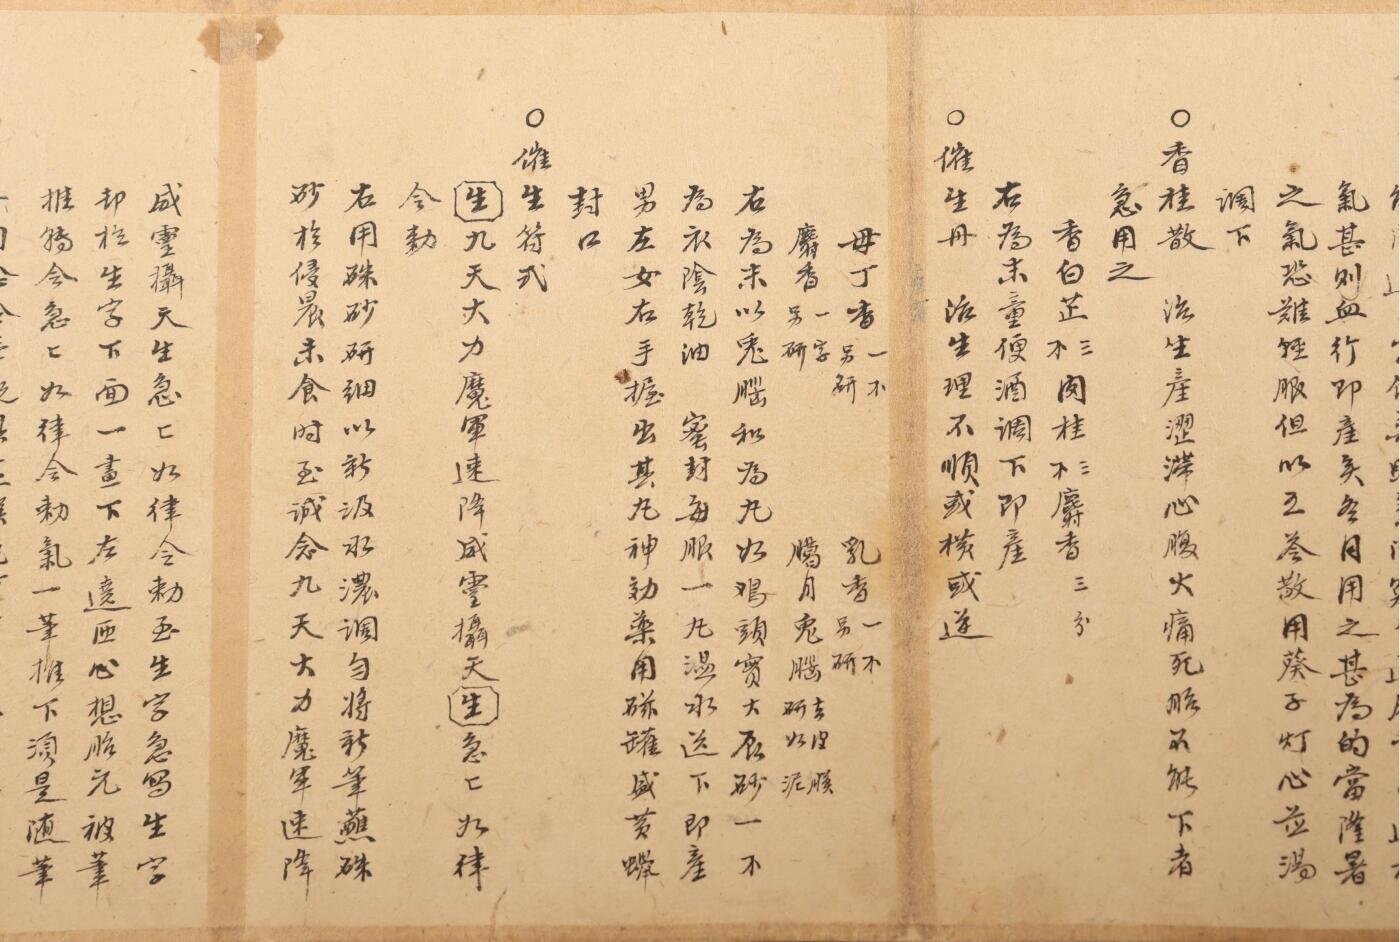 氣甚則血行即產矣冬月用之甚為的當隆暑
之氣恐難輕服但以五苓散用葵子灯心並湯
調下
○香桂散 治生產澀滯心腹大痛死胎不能下者
急用之
香白芷三不肉桂三不麝香三分
右為末童便酒調下即產
○催生丹 治生理不順或橫或逆
母丁香一不另研 乳香一不另研
麝香一字另研 臘月兔腦去皮膜研如泥
右為末以兔腦和為丸如鷄頭實大辰砂一不
為衣陰乾油 蜜封每服一丸溫水送下即產
男左女右手握出其丸神効藥用磁罐盛黃蠟
封口
○催生符式
生九天大力魔軍速降威靈攝天生急〻如律
令勅
右用硃砂研細以新汲水濃調勻將新筆蘸硃
砂於侵晨未食時至誠念九天大力魔軍速降
威靈攝天生急〻如律令勅至生字急寫生字
却於生字下面一畫下左遶匝心想胎元被筆
推轉令急〻如律令勅氣一筆推下須是随筆